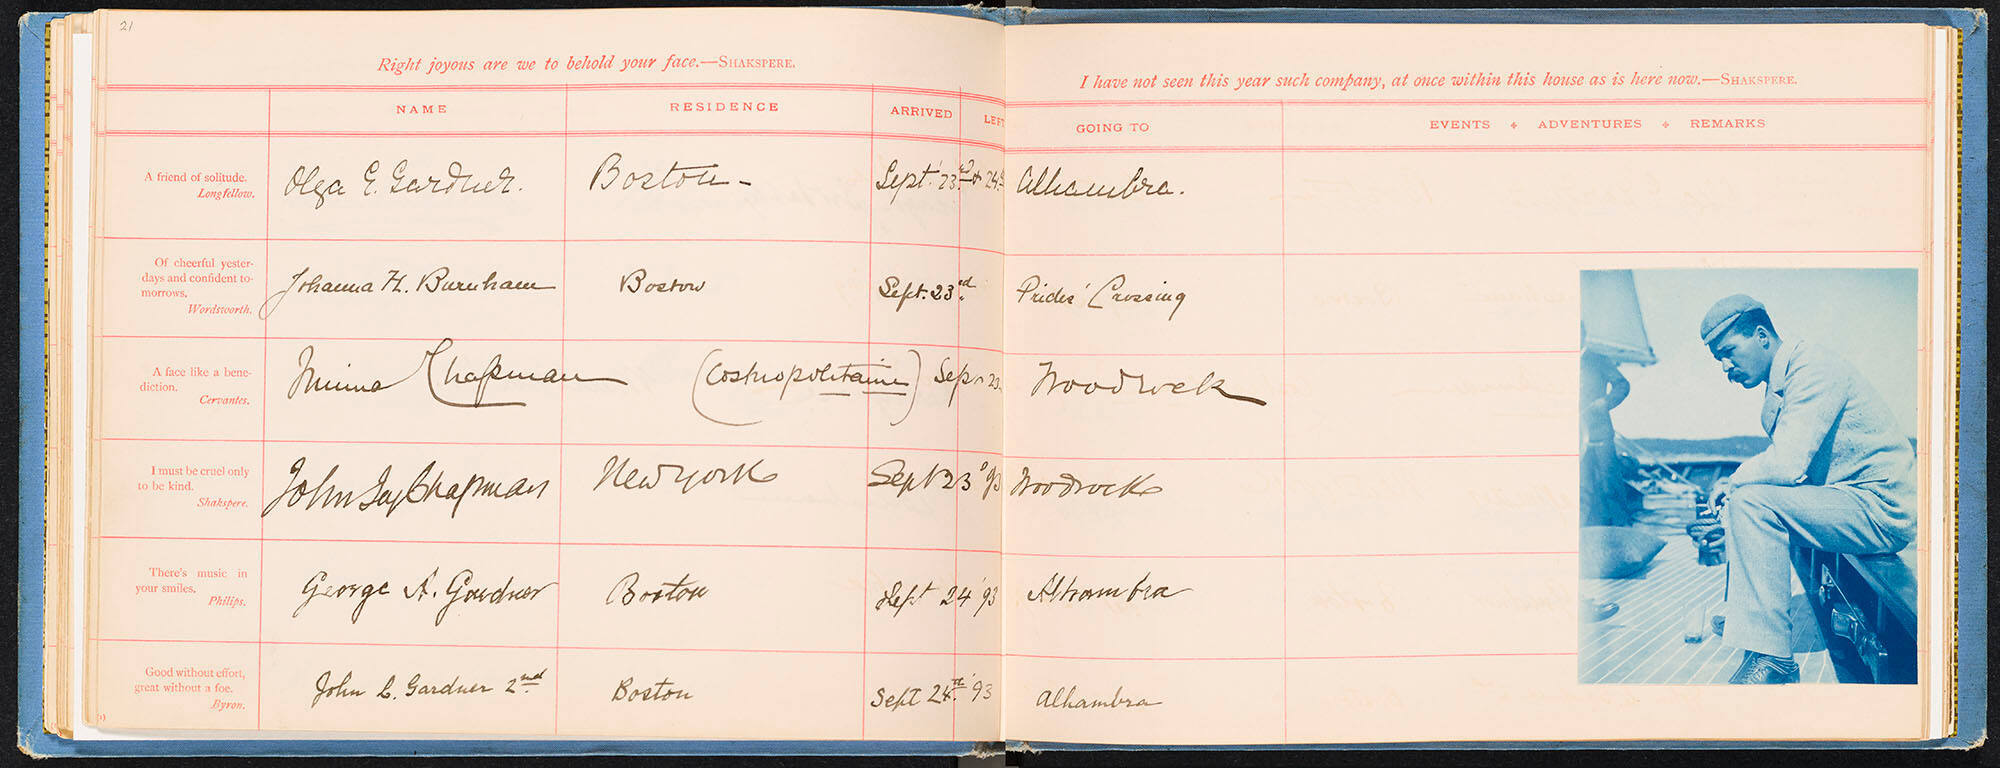 21
Right joyous are we to behold your face.—SHAKSPERE.
I have not seen this year such company, at once within this house as is here now.—SHAKSPERE.
NAME RESIDENCE ARRIVED LEFT GOING TO EVENTS ADVENTURES REMARKS
A friend of solitude.
Longfellow.
Olga E. Gardner. Boston - Sept. 23rd & 24th Alhambra.
Of cheerful yester-
days and confident to-
morrows.
Wordsworth.
Johanna H. Burnham Boston Sept. 23rd. Prides' Crossing
A face like a bene-
diction.
Cervantes.
Minna Chapman (Cosmopolitaine) Sept 23 Woodrock
I must be cruel only
to be kind.
Shakspere.
John Jay Chapman New York Sept 23 '93 Woodrock
There's music in
your smiles.
Philips.
George A. Gardner Boston Sept 24 '93 Alhambra
Good without effort,
great without a foe.
Byron.
John L. Gardner 2nd. Boston Sept 24th. '93 Alhambra